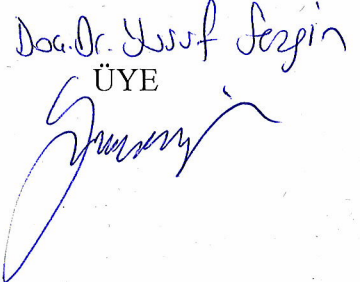 Doç.Dr. Yusuf Sezgin
ÜYE